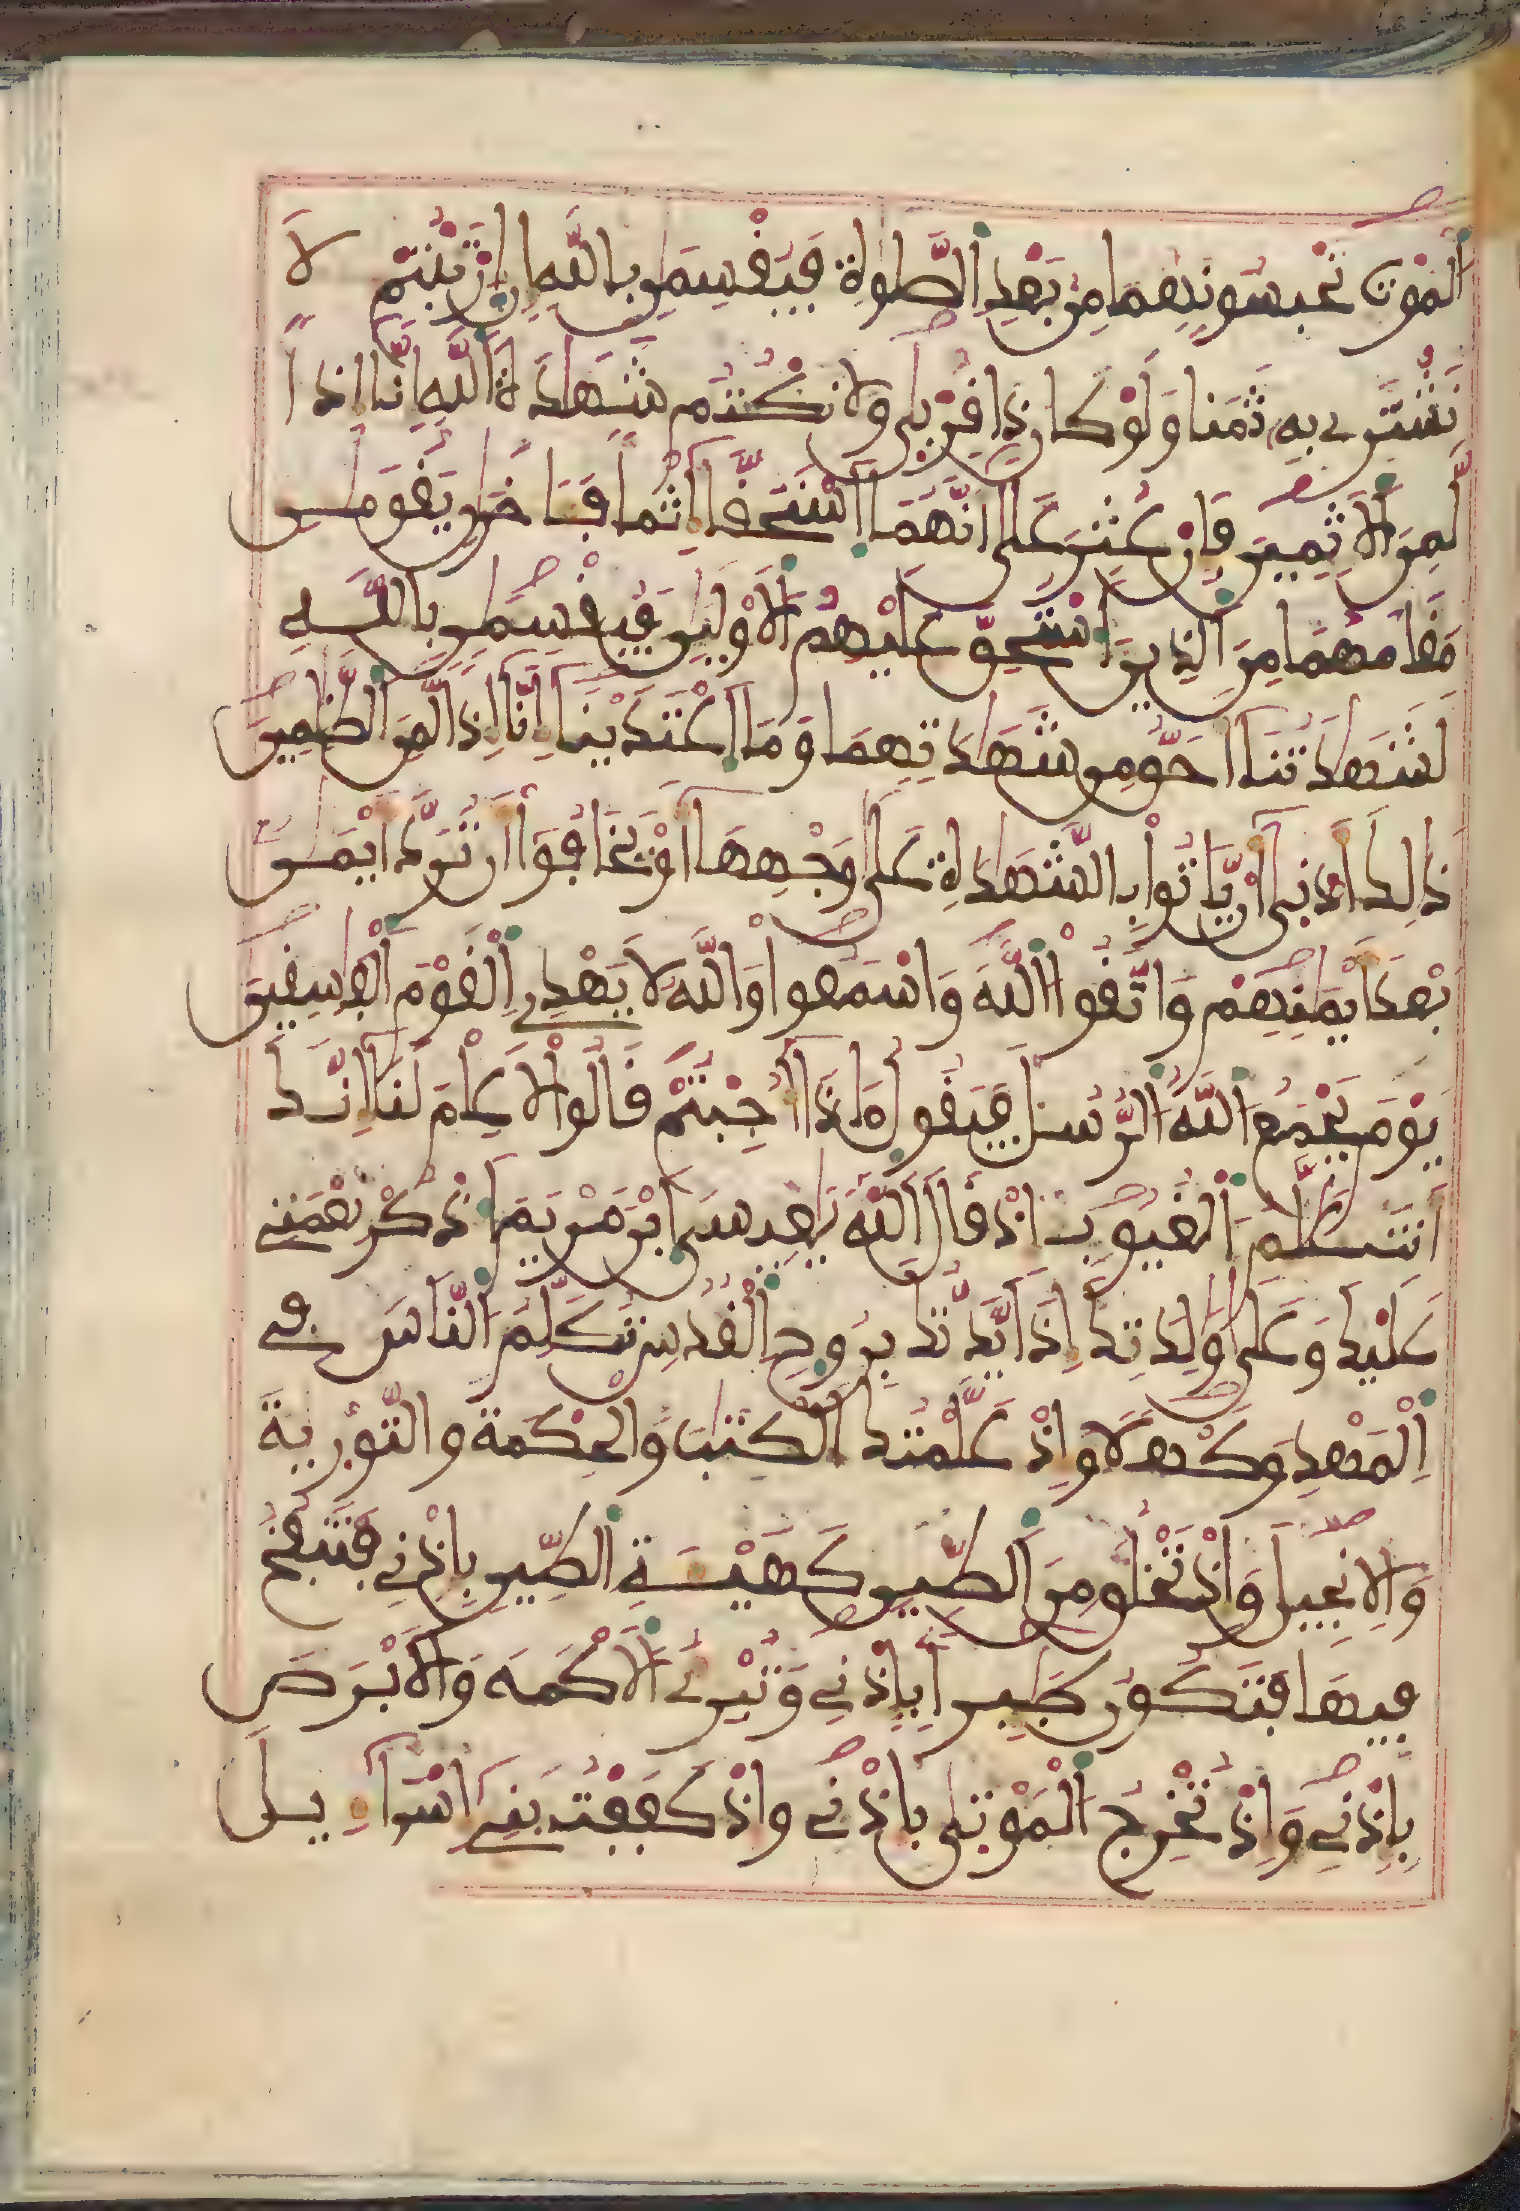 اَ۬لْمَوْتِ تَحْبِسُونَهُمَا مِنۢ بَعْدِ اِ۬لصَّلَوٰةِ فَيُقْسِمَٰنِ بِاللَّهِ إِنِ اِ۪رْتَبْتُمْ لَا
نَشْتَرِي بِهِۦ ثَمَنًا وَلَوْ كَانَ ذَا قُرْبَىٰ وَلَا نَكْتُمُ شَهَٰدَةَ اَ۬للَّهِ إِنَّا إِذًا
لَّمِنَ اَ۬لْأٓثِمِينَ فَإِنْ عُثِرَ عَلَىٰ أَنَّهُمَا اَ۪سْتَحَقَّا إِثْمًا فَـَٔاخَرَٰنِ يَقُومَٰنِ
مَقَامَهُمَا مِنَ اَ۬لذِينَ اَ۟سْتُحِقَّ عَلَيْهِمُ اُ۬لْأَوْلَيَٰنِ فَيُقْسِمَٰنِ بِاللَّهِ
لَشَهَٰدَتُنَا أَحَقُّ مِن شَهَٰدَتِهِمَا وَمَا اَ۪عْتَدَيْنَا إِنَّا إِذًا لَّمِنَ اَ۬لظَّٰلِمِينَ
ذَٰلِكَ أَدْنَىٰ أَنْ يَّاتُوا بِالشَّهَٰدَةِ عَلَىٰ وَجْهِهَا أَوْ يَخَافُوا أَن تُرَدَّ أَيْمَٰنٌ
بَعْدَ أَيْمَٰنِهِمْ وَاتَّقُوا اُ۬للَّهَ وَاسْمَعُوا وَاللَّهُ لَا يَهْدِي اِ۬لْقَوْمَ اَ۬لْفَٰسِقِينَ
يَوْمَ يَجْمَعُ اُ۬للَّهُ اُ۬لرُّسُلَ فَيَقُولُ مَاذَا أُجِبْتُمْ قَالُوا لَا عِلْمَ لَنَا إِنَّكَ
أَنتَ عَلَّٰمُ اُ۬لْغُيُوبِ إِذْ قَالَ اَ۬للَّهُ يَٰعِيسَى اَ۪بْنَ مَرْيَمَ اَ۟ذْكُرْ نِعْمَتِي
عَلَيْكَ وَعَلَىٰ وَٰلِدَتِكَ إِذْ أَيَّدتُّكَ بِرُوحِ اِ۬لْقُدُسِ تُكَلِّمُ اُ۬لنَّاسَ فِي
اِ۬لْمَهْدِ وَكَهْلًا وَإِذْ عَلَّمْتُكَ اَ۬لْكِتَٰبَ وَالْحِكْمَةَ وَالتَّوْرَيٰةَ
وَالْإِنجِيلَ وَإِذْ تَخْلُقُ مِنَ اَ۬لطِّينِ كَهَيْـَٔةِ اِ۬لطَّيْرِ بِإِذْنِي فَتَنفُخُ
فِيهَا فَتَكُونُ طَٰٓئِرًا بِإِذْنِي وَتُبْرِئُ اُ۬لْأَكْمَهَ وَالْأَبْرَصَ
بِإِذْنِي وَإِذْ تُخْرِجُ اُ۬لْمَوْتَىٰ بِإِذْنِي وَإِذْ كَفَفْتُ بَنِي إِسْرَٰٓءِيلَ